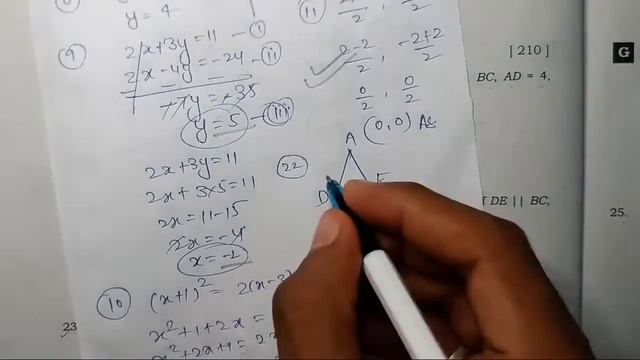 y = 4
9
2x+3y=11 - i
2x-4y=-24 - ii
+7y=+35
y=5 - iii
2x+3y=11
2x+3×5=11
2x=11-15
2x=-4
x=-2
10
(x+1)² = 2(x-3)
x²+1+2x =
x²+2x+1=
11
2-2/2 , -2+2/2
0/2 , 0/2
(0,0) Ans
22
A
D
E
[ 210 ]
G
BC, AD = 4,
DE || BC,
25.
23